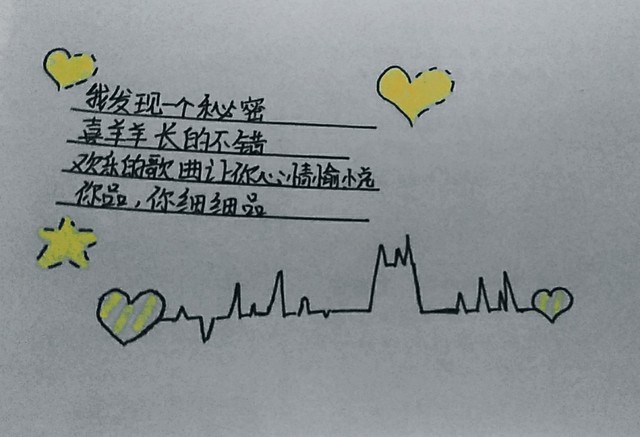 我发现一个秘密
喜羊羊长的不错
欢乐的歌曲让你心情愉悦
你品，你细细品